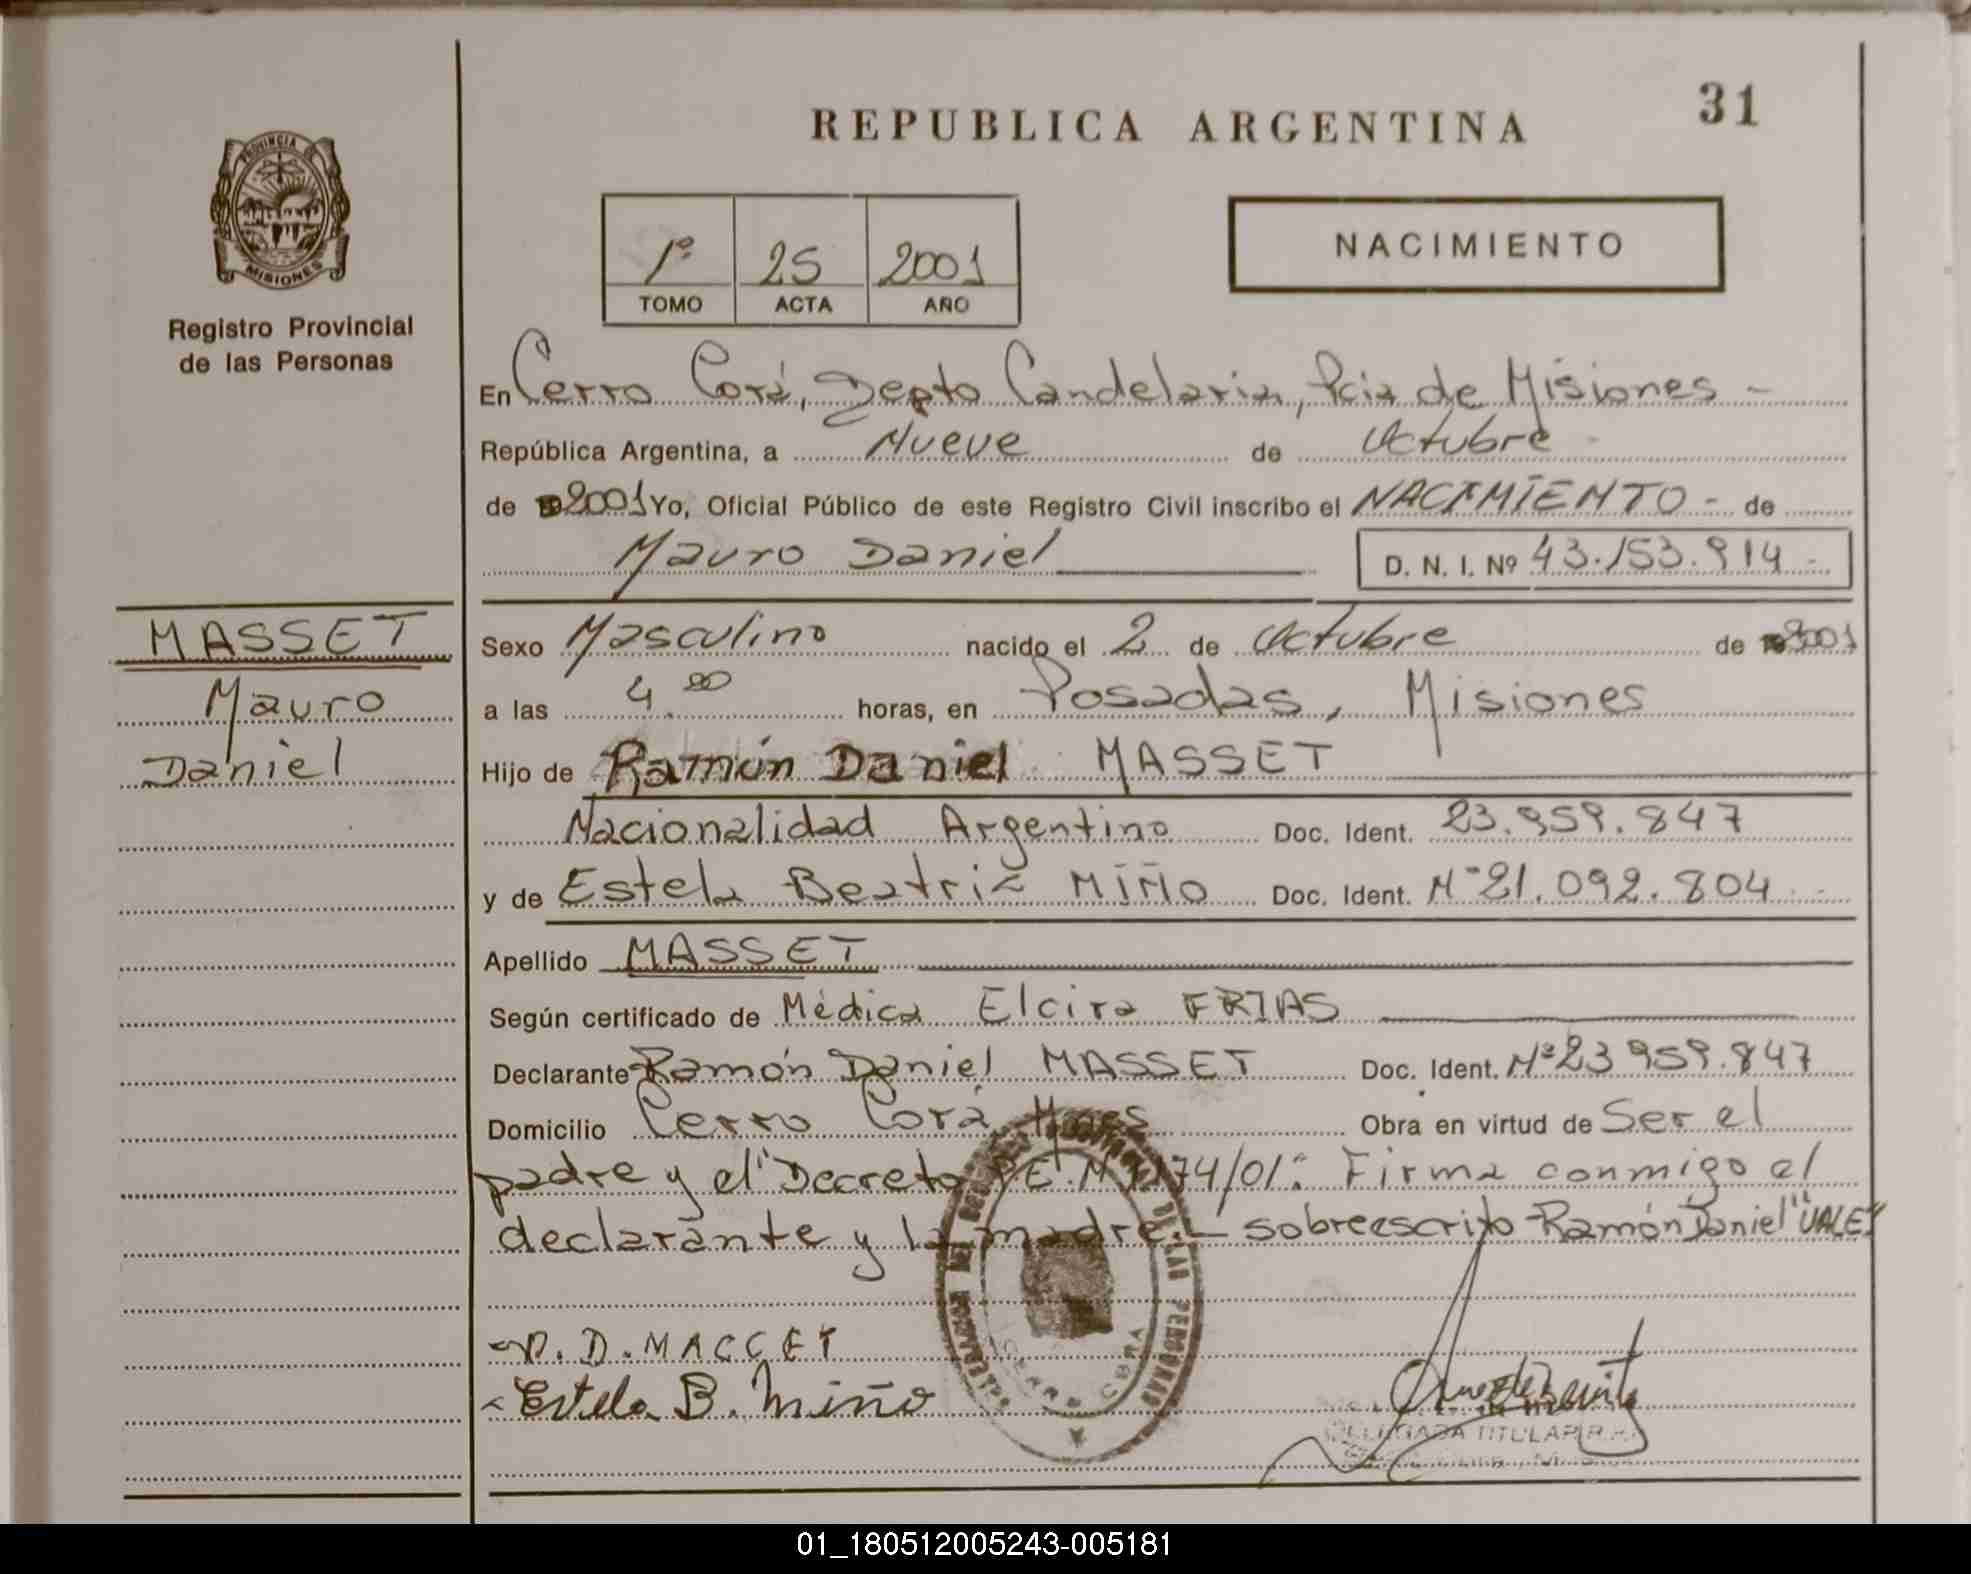 REPUBLICA ARGENTINA
31
PROVINCIA DE
MISIONES
Registro Provincial
de las Personas
1º 25 2001
TOMO ACTA AÑO
NACIMIENTO
En Cerro Corá, Depto Candelaria, Pcia de Misiones -
República Argentina, a Nueve de Octubre -
de 2001 Yo, Oficial Público de este Registro Civil inscribo el NACIMIENTO - de
Mauro Daniel D. N. I. Nº 43.153.914 -
MASSET
Mauro
Daniel
Sexo Masculino nacido el 2 de Octubre de 2001
a las 4.20 horas, en Posadas, Misiones
Hijo de Ramón Daniel MASSET
Nacionalidad Argentino Doc. Ident. 23.959.847
y de Estela Beatriz MIÑO Doc. Ident. Nº 21.092.804 -
Apellido MASSET
Según certificado de Médica Elcira FRIAS
Declarante Ramón Daniel MASSET Doc. Ident. Nº 23 959.847
Domicilio Cerro Corá, Mnes Obra en virtud de Ser el
padre y el Decreto 74/01: Firma conmigo el
declarante y la madre.- sobreescrito Ramón Daniel "VALE"
D. MACCET
Estela B. Miño
DELEGADA TITULAR
CERRO CORA
DE LAS PERSONAS
01_180512005243-005181